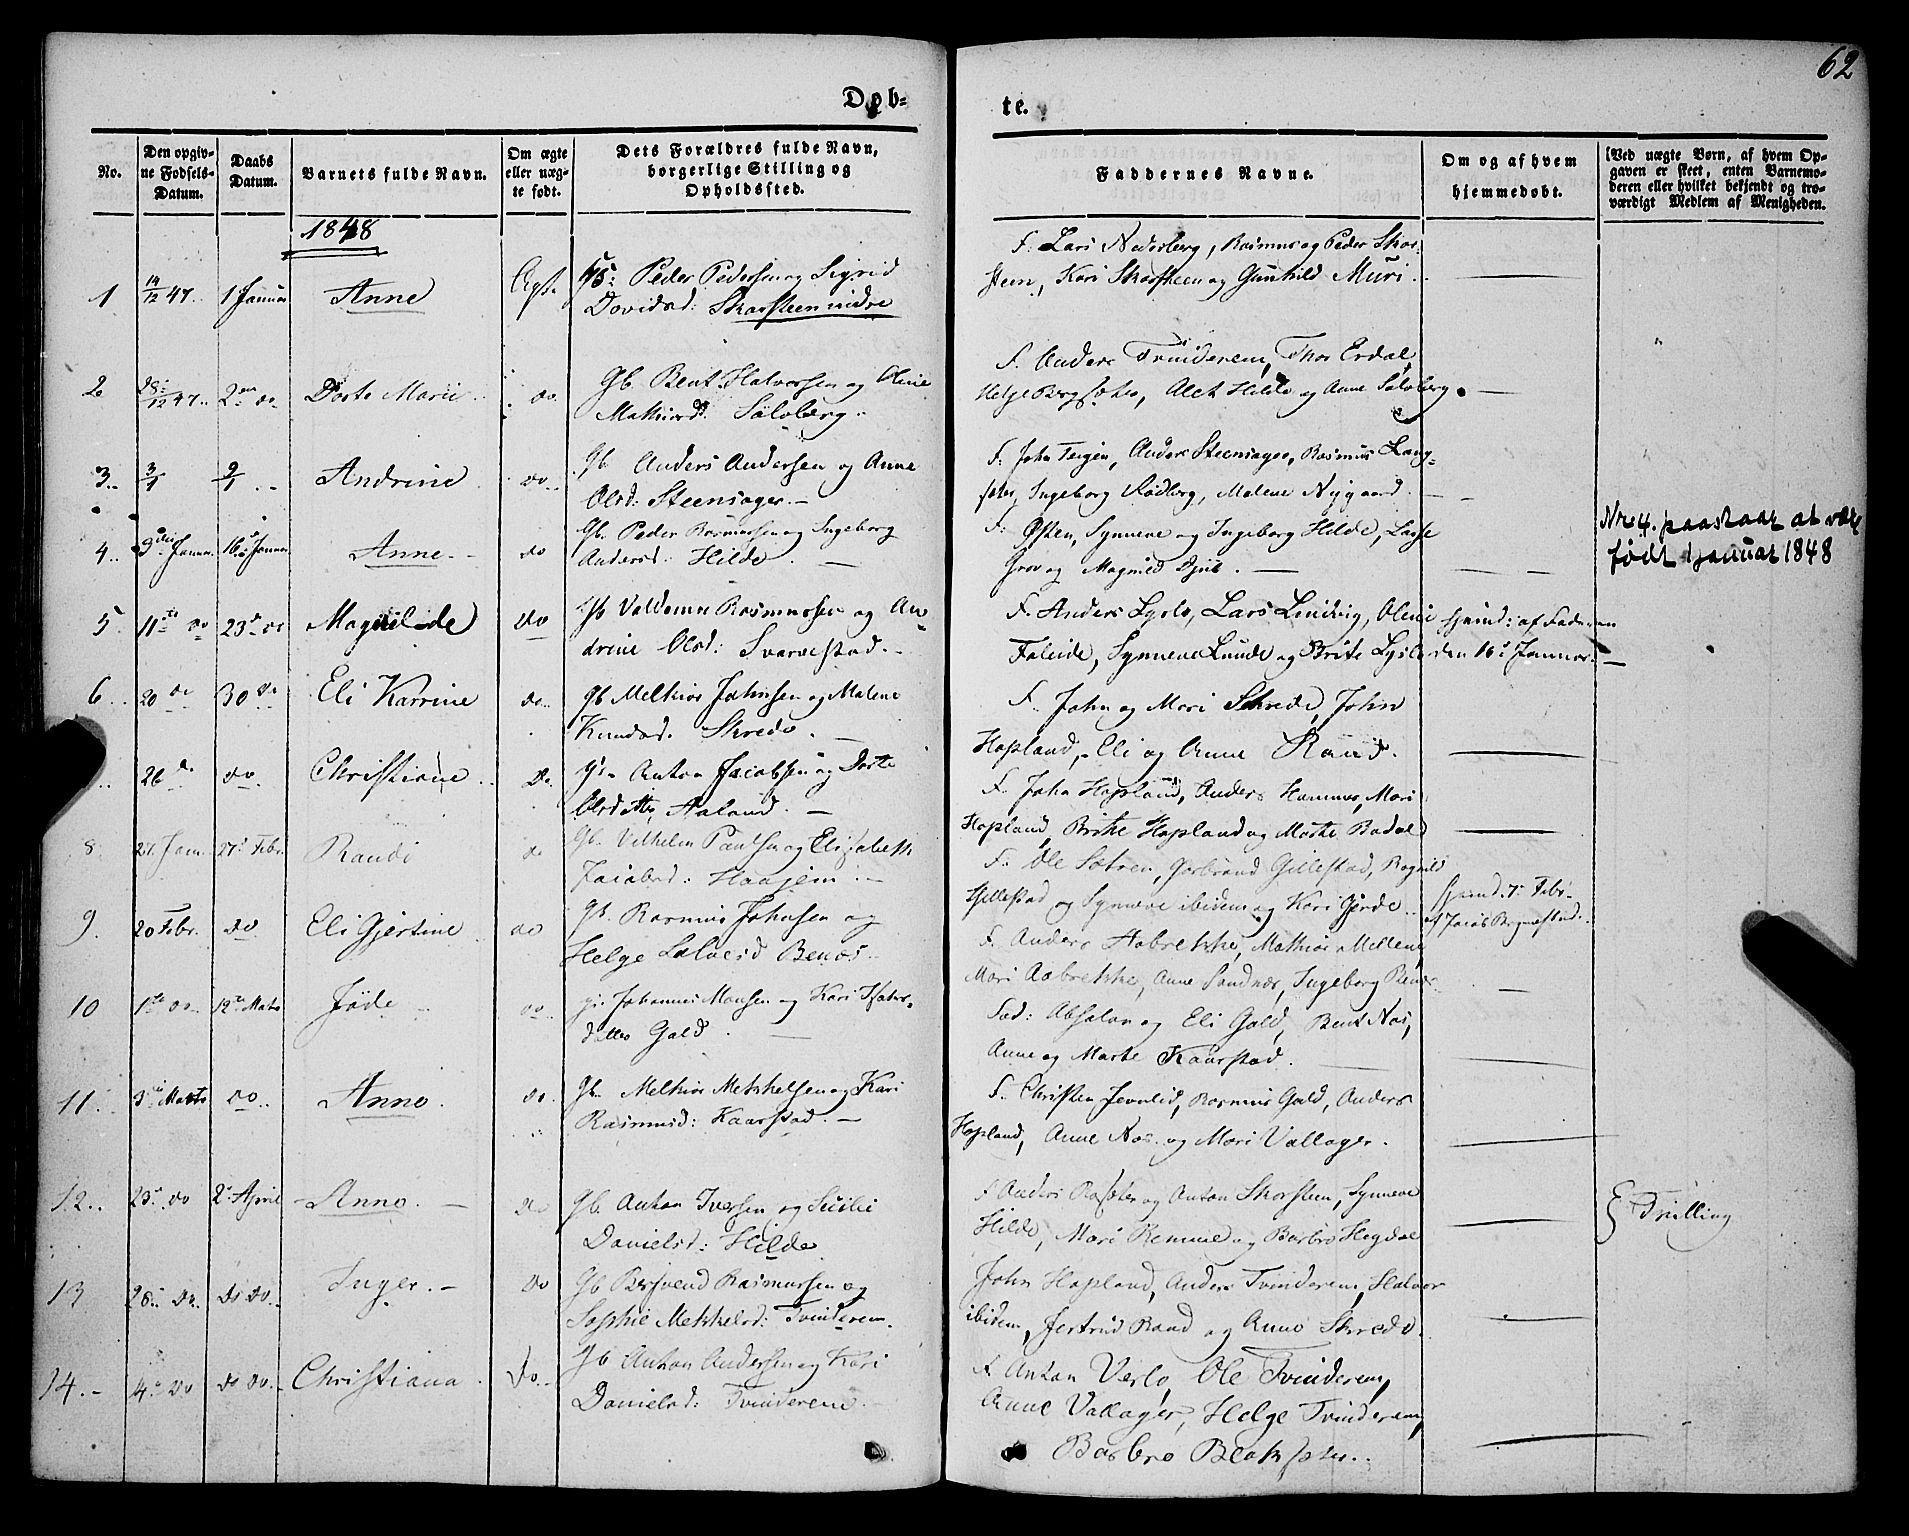 62
Døb-
te.
No.
Den opgiv-
ne Fødsels-
Datum.
Daabs
Datum.
Barnets fulde Navn.
Om ægte
eller uæg-
te født.
Dets Forældres fulde Navn,
borgerlige Stilling og
Opholdssted.
Faddernes Navne.
Om og af hvem
hjemmedøbt.
(Ved uægte Børn, af hvem Op-
gaven er skeet, enten Barnemo-
deren eller hvilket bekjendt og tro-
værdigt Medlem af Menigheden.
1848
1 14/12 47. 1 Januar Anne Ægt.
Peder Pedersen og Sigrid
Davidsd: Skarsteen nidre
F. Lars Nedreberg, Rasmus og Peder Skar-
steen, Kari Skarsteen og Gunhild Muri.
2 28/12 47. 2den do Dorte Marie do
Gb. Bent Halvorsen og Oline
Mathiasd. Sølvberg.
F. Anders Tvinderem, Thor Erdal,
Helge Bergsæter, Alet Hilde og Anne Sølvberg.
3. 3/1 9/1 Andrine do
Gb. Anders Andersen og Anne
Olsd: Steensager.
F. John Teigen, Anders Steensager, Rasmus Lang-
sæter, Ingeborg Rødberg, Malene Nygaard.
4. 9de Januar 16. Januar Anne do
Gb. Peder Rasmussen og Ingeborg
Andersd: Hilde.
F: Østen, Synneve og Ingeborg Hilde, Lasse
Grov og Magnild
Nr. 4. paastaar at være
født 1 januar 1848
5. 11te do 23de do Magnilde do
Gb Valdemar Rasmussen og An-
drine Olsd: Svarvestad.
F. Anders Lyslo, Lars Lindvig, Oline
Faleide, Synneve Lunde og Brite Lyslo
hjemd: af Faderen
den 16de Januar.
6. 20 do 30 do Eli Karrine do
Gb Melkior Johnsen og Malene
Knudsd. Skrede.
F. John og Mari Skrede, John
Hopland, Eli og Anne Rand.
26 do do Christiane do
Gb. Anton Jacobsen og Dorte
Olsdtter Aaland.
F. John Hopland, Anders Hammer, Mari
Hopland, Brithe Hopland og Marthe Rødal
8 27. Jan. 27. Febr. Randi do
Gb. Vilhelm Paulsen og Elizabeth
Jacobsd: Haajem.
F. Ole Sætren, Gerbrand Gillestad, Ragnild
Gjillestad og Synneve ibidem og Kari Gjerde.
hjemd. 7de Feb.
af Jacob Bergnestad.
9. 20 Febr. do Eli Gjertine do
Gb. Rasmus Johnsen og
Helge Salvesd Benes.
F. Anders Aabrekke, Mathias Melleme,
Mari Aabrekke, Anne Sandnes, Ingeborg
10 1te do 19de Marts Jøde do
Johannes Monsen og Kari
datter Gald.
Fad: Absalon og Eli Gald, Bent Nos,
Anne og Marte Kaarstad.
11. 3de Marts do Anne. do
Gb. Melkior Mekkelsen og Kari
Rasmusd: Kaarstad.
F. Christen Jevnlid, Rasmus Gald, Anders
Hopland, Anne Nos og Mari Vallager.
12. 23de do 2de April Anne. do
Gb. Anton Iversen og Sicilie
Danielsd: Hilde
F Anders Rosæter og Anton Skarsteen, Synneve
Hilde, Mari Remme og Barbro Hegdal
E Tvilling
13 28de do do do Inger. do
Gb Bersvend Rasmussen og
Sophie Mekkelsd: Tvinderem.
John Hopland, Anders Tvinderem, Halvor
ibidem, Jertrud Rand og Anne Skrede.
14. 4de do do do Christiana do
Gb Anton Andersen og Kari
Danielsd: Tvinderem.
F Anton Verlo, Ole Tvinderem,
Anne Vallager, Helge Tvinderem,
Barbro Bleksæter.